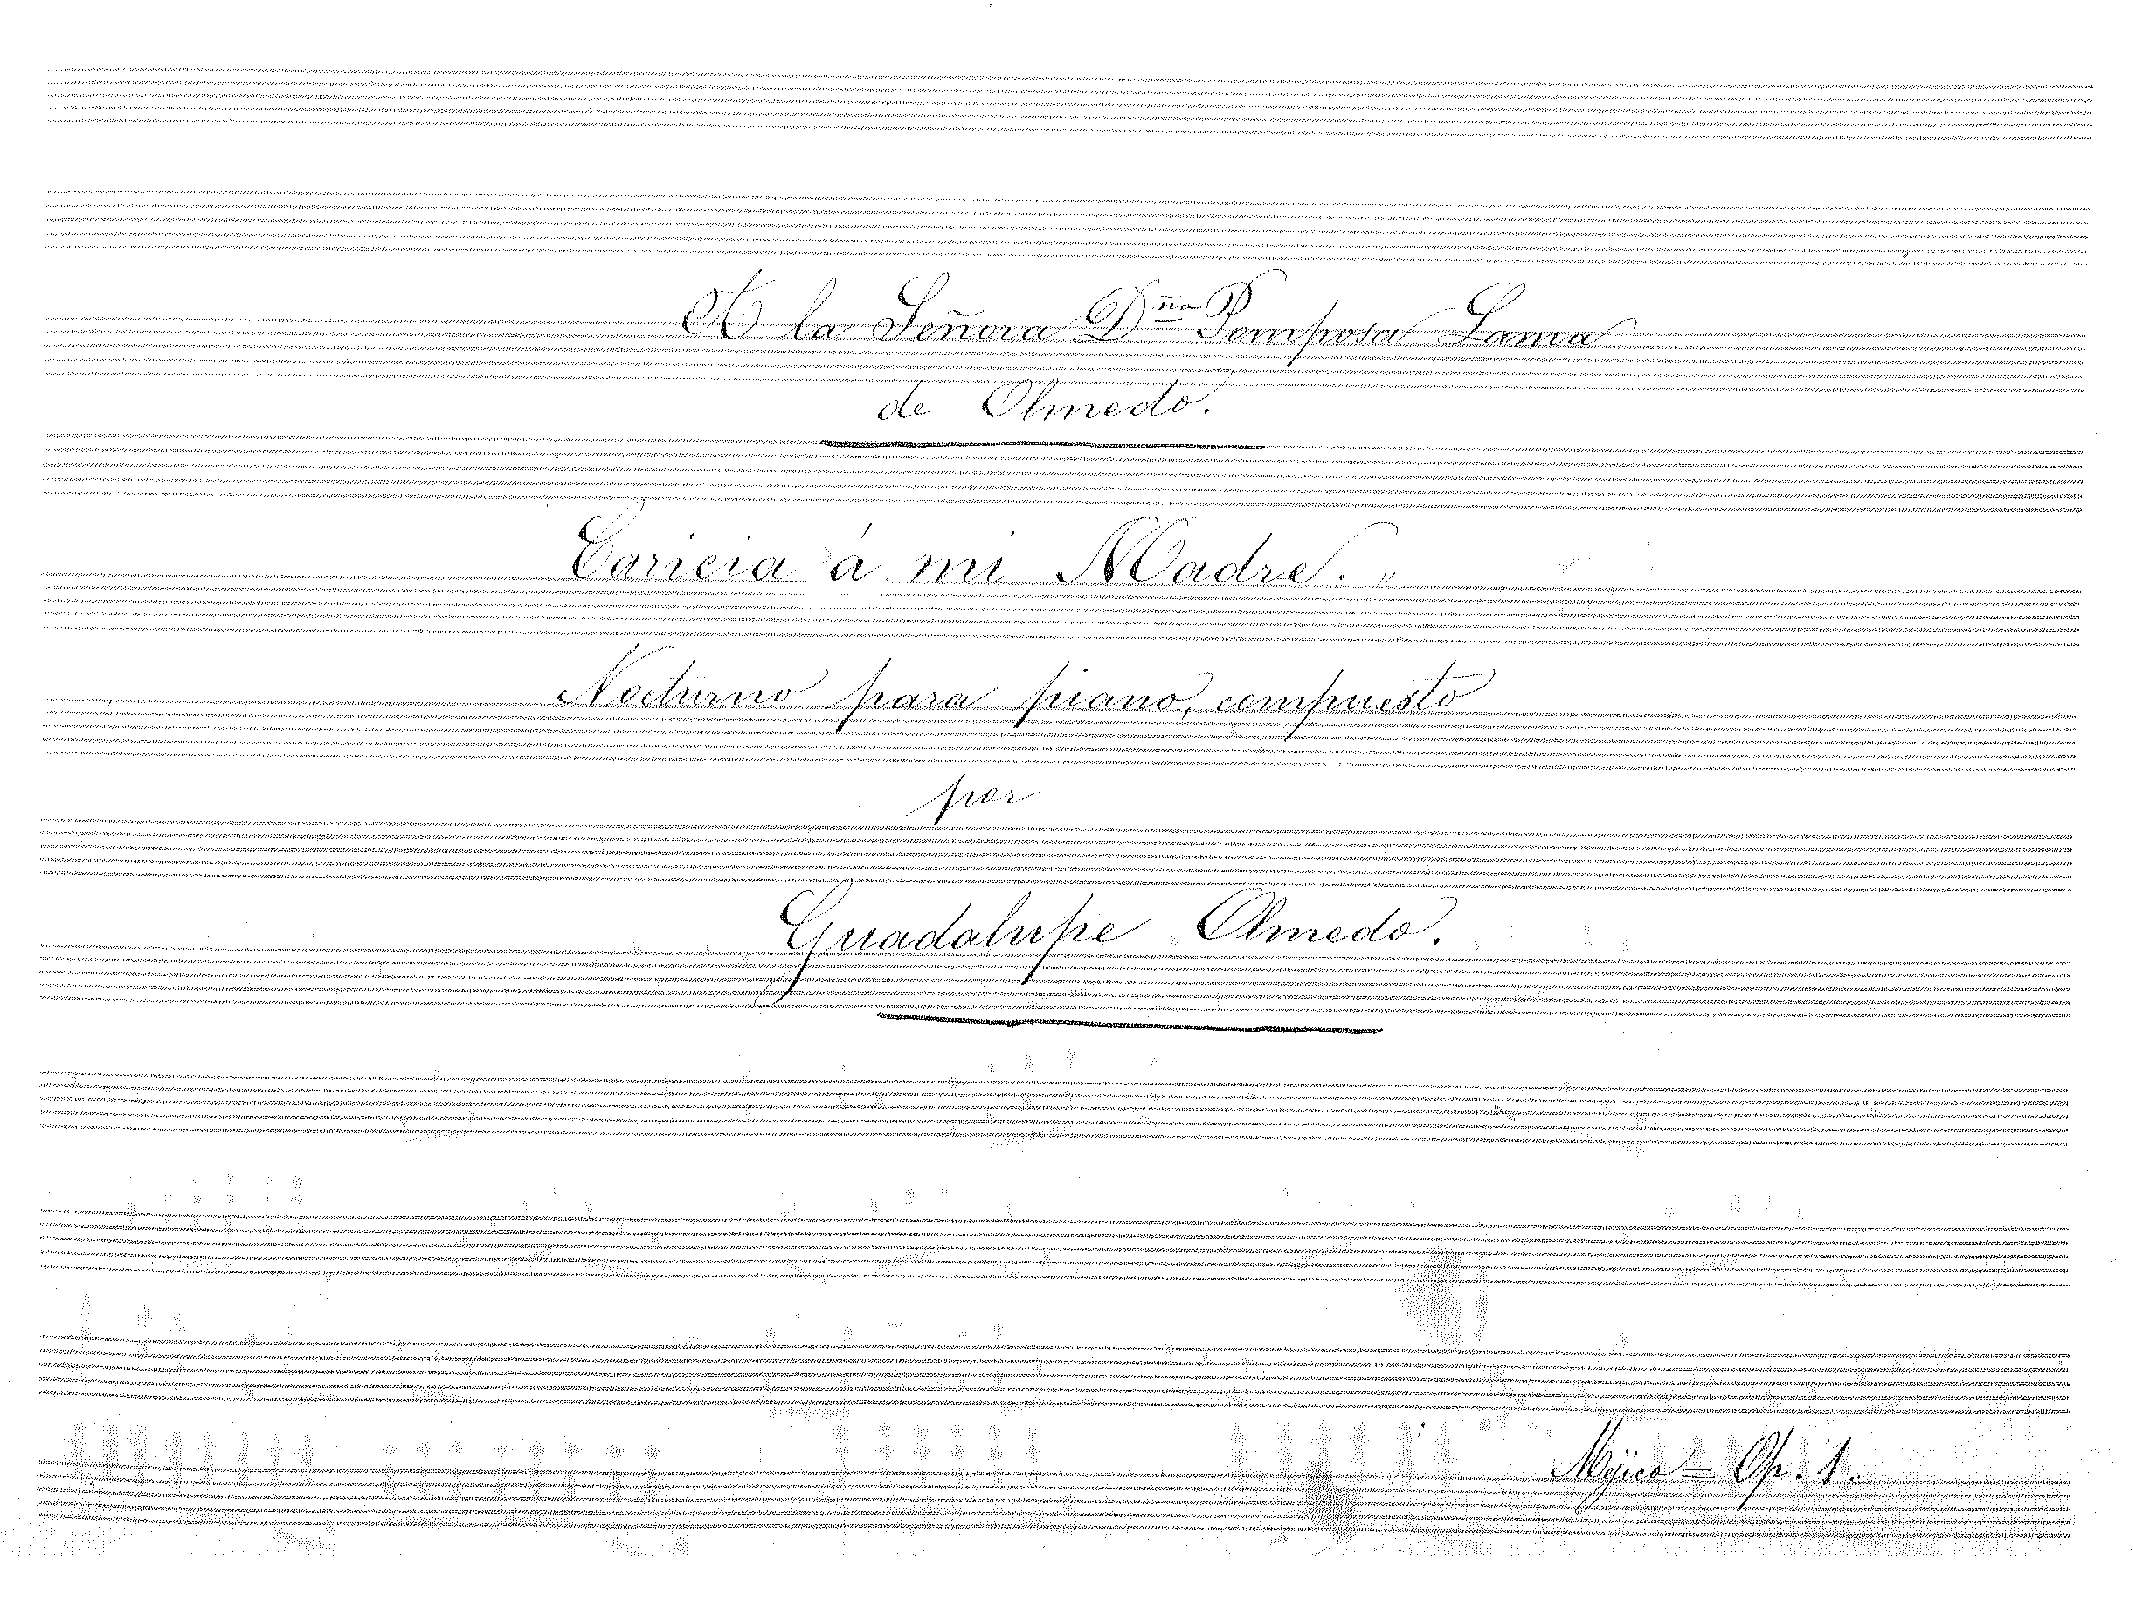 A la Señora Dña Pomposa Lama
de Olmedo.
Caricia á mi Madre.
Nocturno para piano, compuesto
por
Guadalupe Olmedo.
Méjico = Op. 1.